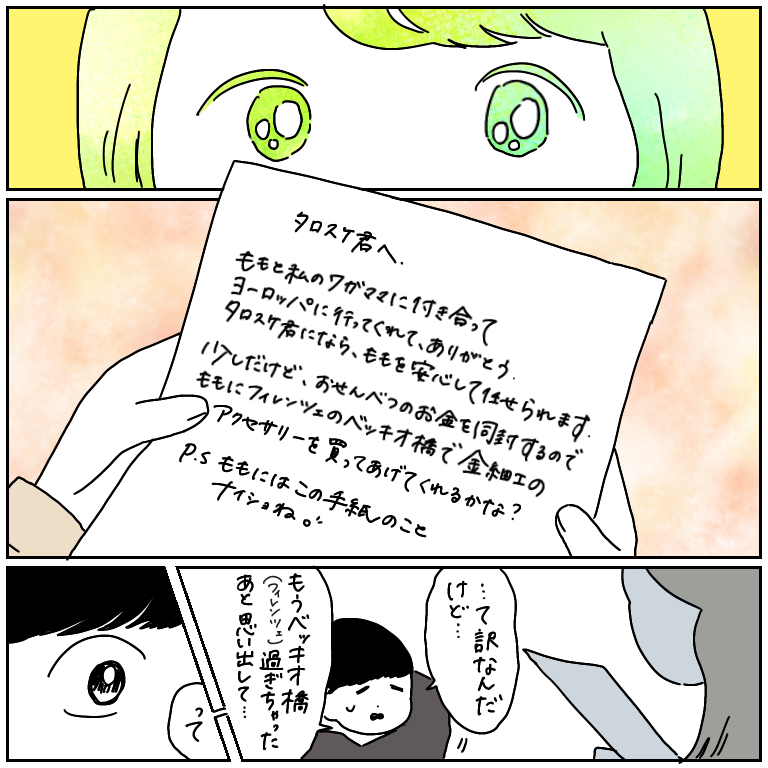 タロスケ君へ.
ももと私のワガママに付き合って
ヨーロッパに行ってくれて、ありがとう.
タロスケ君になら、ももを安心して任せられます.
少しだけど、おせんべつのお金を同封するので
ももにフィレンツェのベッキオ橋で金細工の
アクセサリーを買ってあげてくれるかな?
P.S ももにはこの手紙のこと
ナイショね。
…て訳なんだ
けど…
もうベッキオ橋
(フィレンツェ)過ぎちゃった
あと思い出して…
って